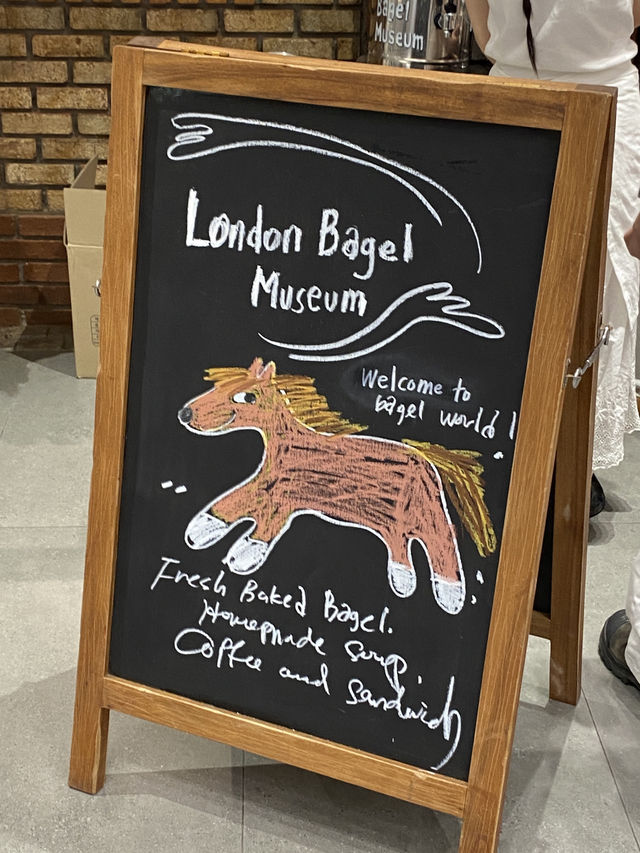 Bagel
Museum
London Bagel
Museum
Welcome to
bagel world!
Fresh Baked Bagel.
Homemade soup.
Coffee and sandwich